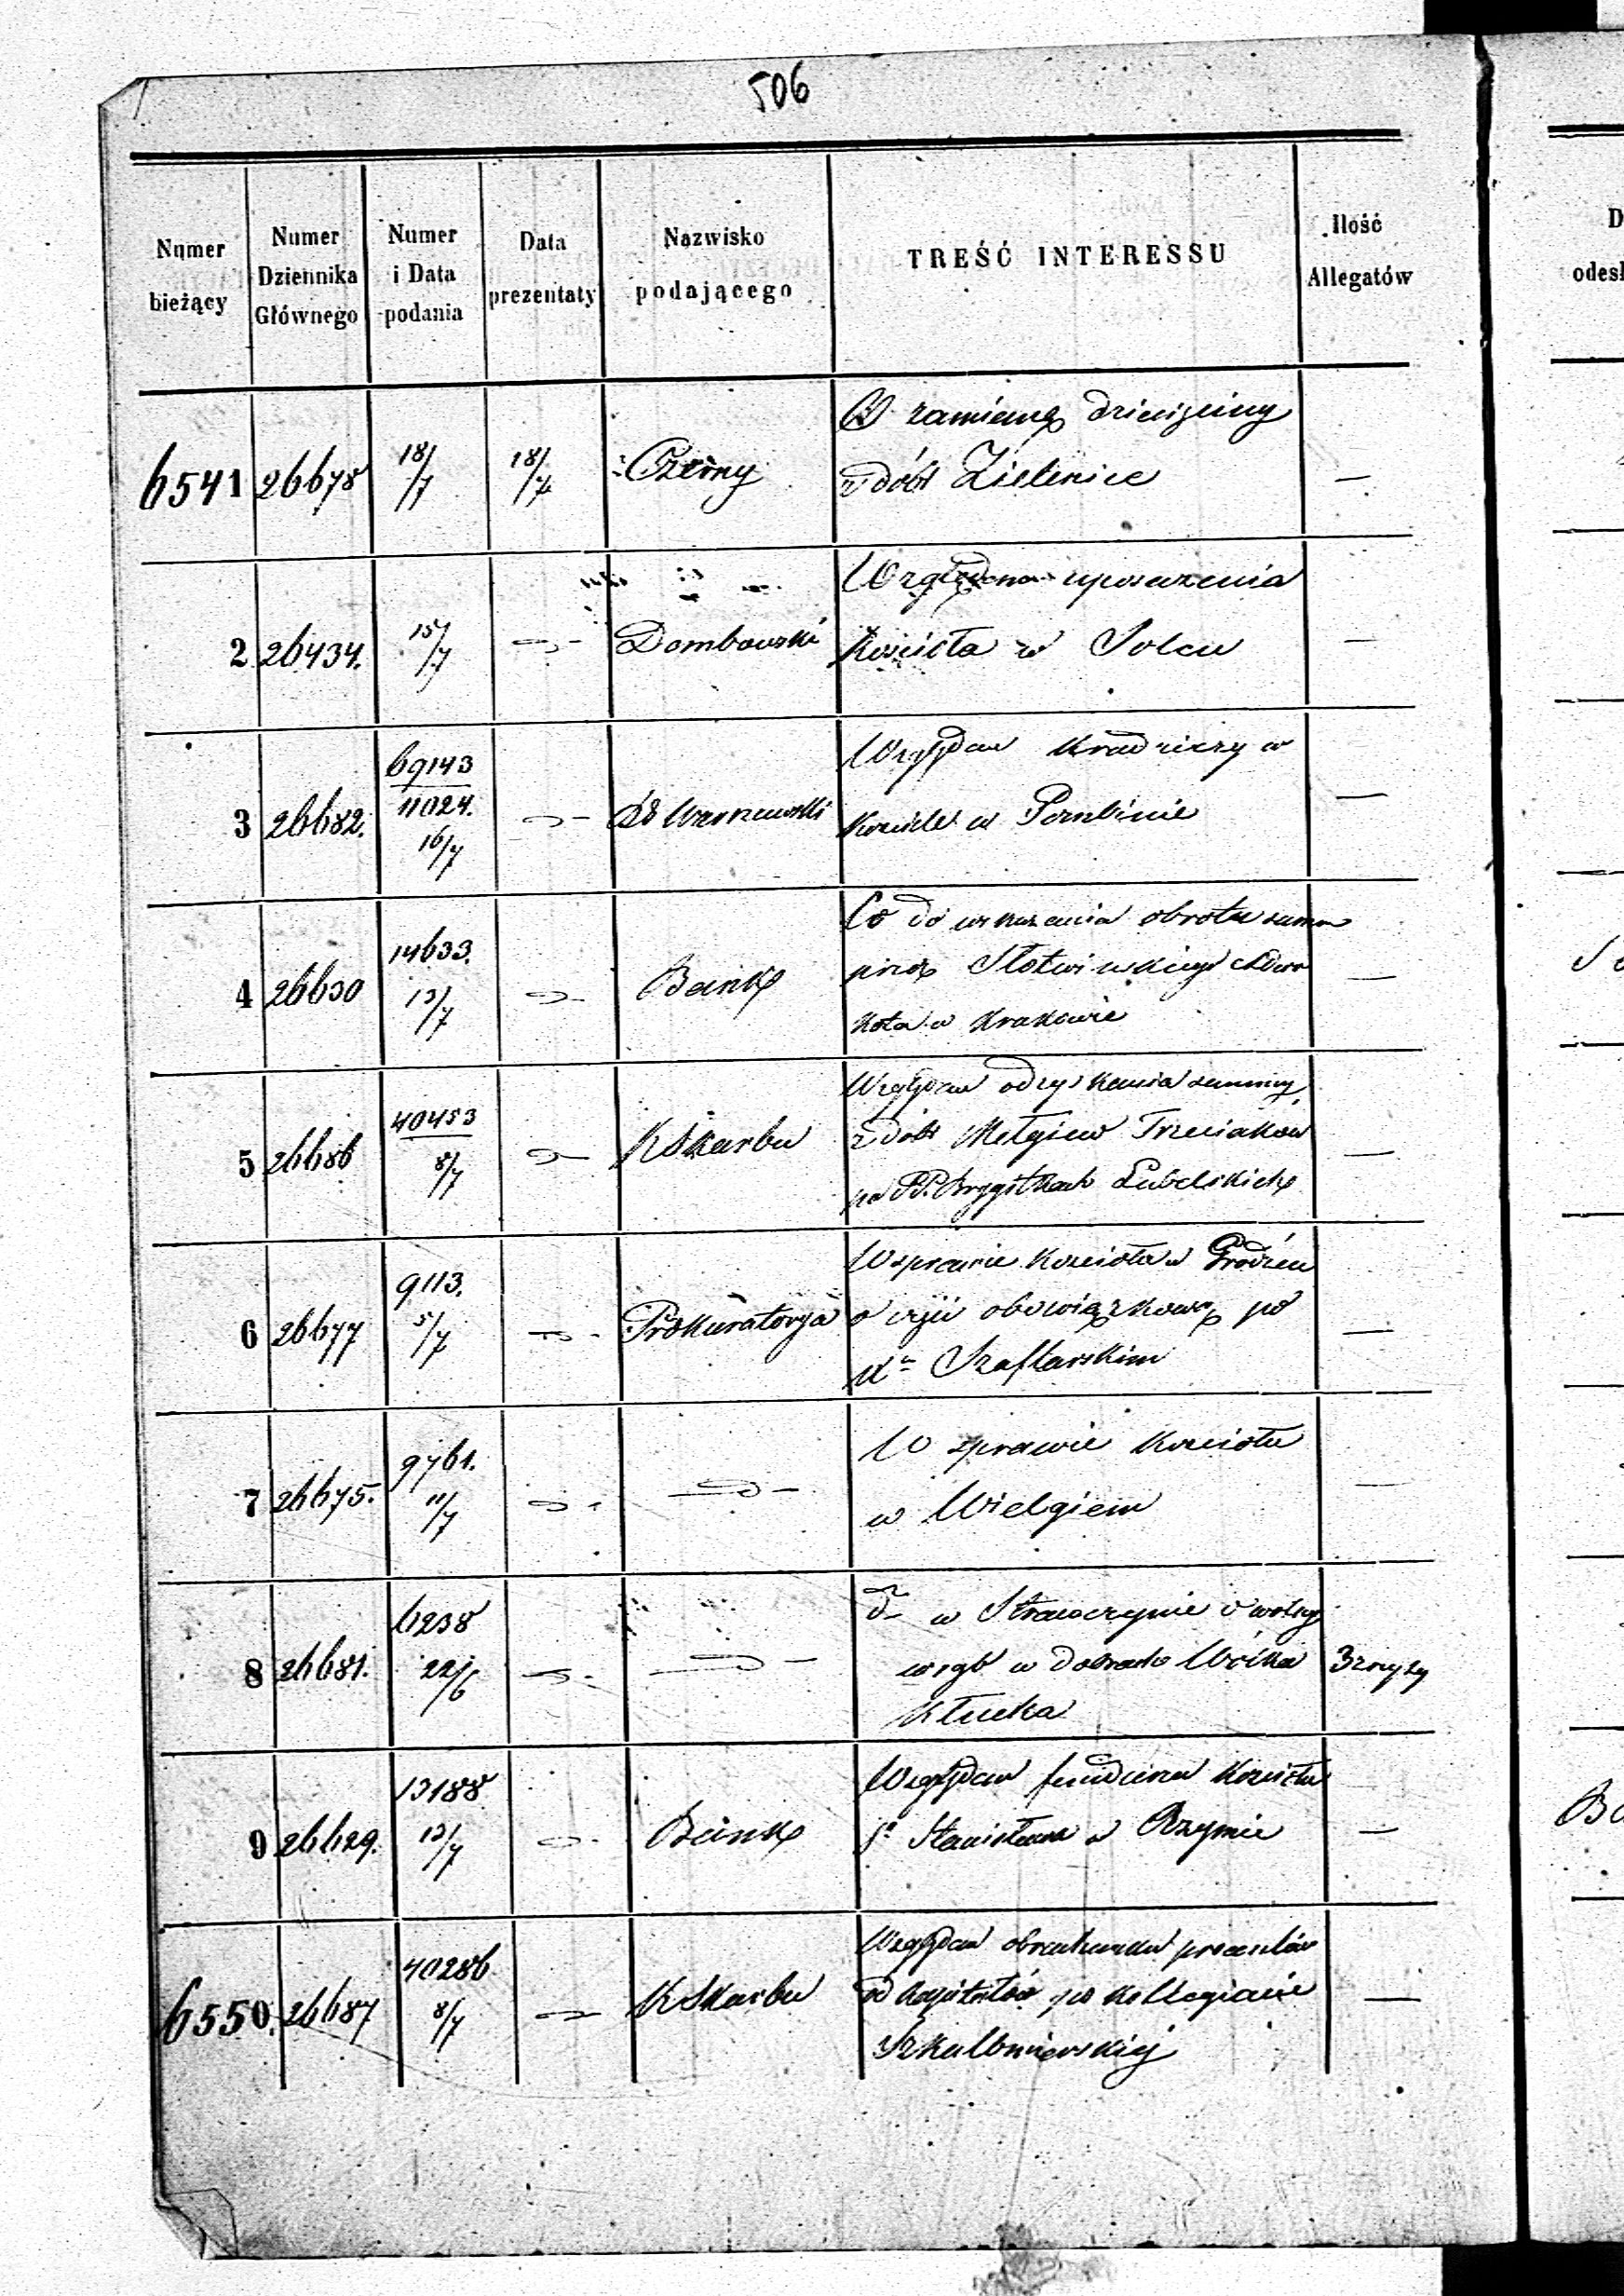 506
Numer bieżący
Numer Dziennika Głównego
Numer i Data podania
Data prezentaty
Nazwisko podającego
TREŚĆ INTERESSU
Ilość Allegatów
6541 26678 18/7 18/7 Czerny
O zamianę dziesięciny
z dóbr Zielenice —
2 26434. 15/7 Dombowski
Względem uposażenia
Kościoła w Solcu —
3 26682. 69143 11024. 16/7
Względem Kradzieży w
Kościele w Porzbinie —
4 26630 14633. 13/7 Bank
Co do wskazania obrotu summ
przez Słotwińskiego
w Krakowie —
5 26686 40453 8/7 K Skarbu
Względem odzyskania summy
z dóbr Mełgiew Trzeciaków
po PP. Brygitkach Lubelskich —
6 26677 9113. 5/7 Prokuratorya
W sprawie Kościoła w
o obowiązkową po
Xu Szaflarskim —
7 26675. 9761. 11/7
W sprawie Kościoła
w Wielgiem —
8 26681. 6238 22/6
do w Strawczynie o wolny
wrąb w dobrach Wólka
Kłucka
9 26629. 13188 13/7 Bank
Względem funduszu Kościoła
Sgo Stanisława w Rzymie —
6550. 26687 40286 8/7 K Skarbu
Względem obrachunku procentów
od Kapitałów po Kollegiacie
Szkalbmierskiej —